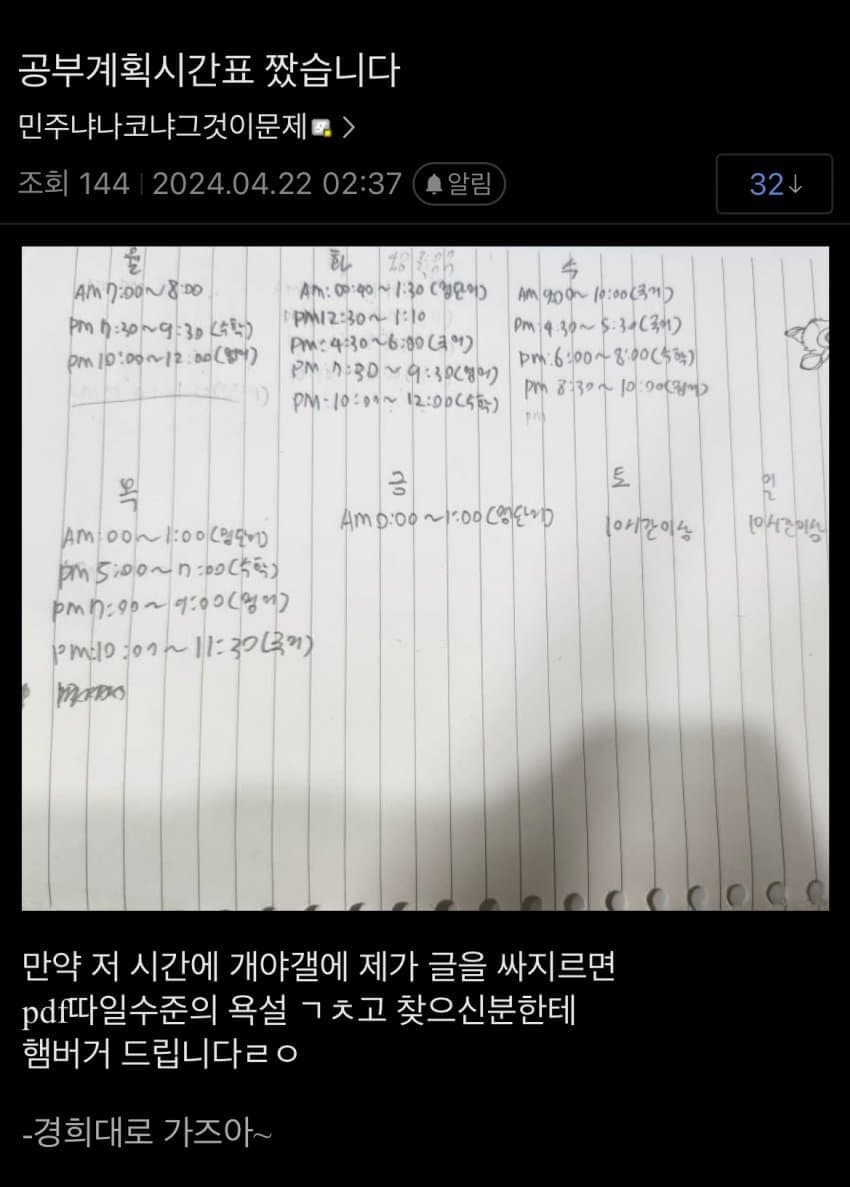 공부계획시간표 짰습니다
민주냐나코냐그것이문제
조회 144 2024.04.22 02:37 알림
32↓
월
AM 7:00~8:00
pm 7:30~9:30 (수학)
pm 10:00~12:00 (영어)
화
Am: 00:40~1:30 (영단어)
pm12:30~1:10
pm: 4:30~6:00 (국어)
pm 7:30~9:30 (영어)
pm: 10:00~12:00 (수학)
수
Am 9:00~10:00 (국어)
pm: 4:30~5:30 (국어)
pm: 6:00~8:00 (수학)
pm 8:30~10:00 (영어)
pm
목
Am: 00~1:00 (영단어)
pm 5:00~7:00 (수학)
pm 7:00~9:00 (영어)
pm: 10:00~11:30 (국어)
금
Am 0:00~1:00 (영단어)
토
10시간이상
일
10시간이상
만약 저 시간에 개야갤에 제가 글을 싸지르면
pdf따일수준의 욕설 ㄱㅊ고 찾으신분한테
햄버거 드립니다ㄹㅇ
-경희대로 가즈아~